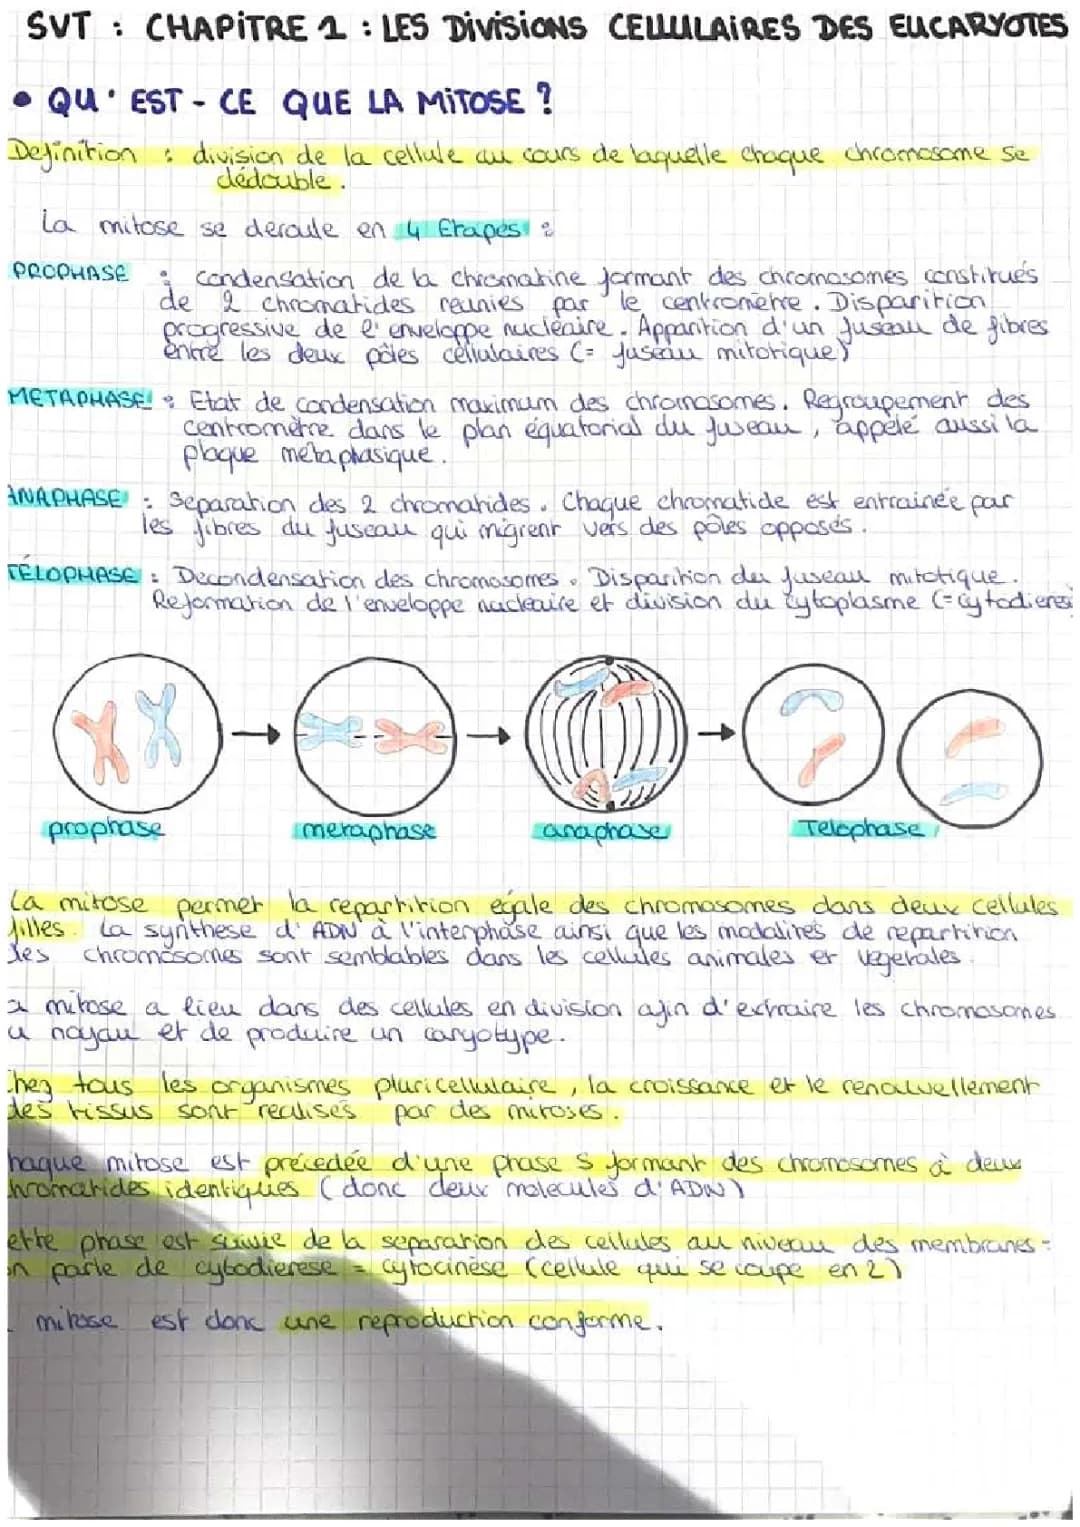 SVT : CHAPITRE 1 : LES DIVISIONS CELLULAIRES DES EUCARYOTES
• QU'EST-CE QUE LA MITOSE ?
Definition : division de la cellule au cours de laquelle chaque chromosome se
dédouble.
La mitose se deroule en 4 Etapes :
PROPHASE : condensation de la chromatine formant des chromosomes constitués
de 2 chromatides reunies par le centromètre. Disparition
progressive de l'enveloppe nucléaire. Apparition d'un fuseau de fibres
entre les deux pôles cellulaires (= fuseau mitotique)
METAPHASE : Etat de condensation maximum des chromosomes. Regroupement des
centromètre dans le plan équatorial du fuseau, appelé aussi la
plaque métaphasique.
ANAPHASE : Separation des 2 chromatides. Chaque chromatide est entrainée par
les fibres du fuseau qui migrent vers des pôles opposés.
TÉLOPHASE : Decondensation des chromosomes. Disparition du fuseau mitotique.
Reformation de l'enveloppe nucleaire et division du cytoplasme (=cytodierese
prophase
metaphase
anaphase
Telophase
La mitose permet la repartition égale des chromosomes dans deux cellules
filles. La synthese d'ADN à l'interphase ainsi que les modalités de repartition
des chromosomes sont semblables dans les cellules animales et vegetales.
a mitose a lieu dans des cellules en division afin d'extraire les chromosomes
u noyau et de produire un caryotype.
Chez tous les organismes pluricellulaire, la croissance et le renouvellement
des tissus sont realisés par des mitoses.
haque mitose est précedée d'une phase S formant des chromosomes à deux
hromatides identiques (donc deux molecules d'ADN)
ette phase est suivie de la separation des cellules au niveau des membranes :
on parle de cytodierese = cytocinèse (cellule qui se coupe en 2)
mitose est donc une reproduction conforme.